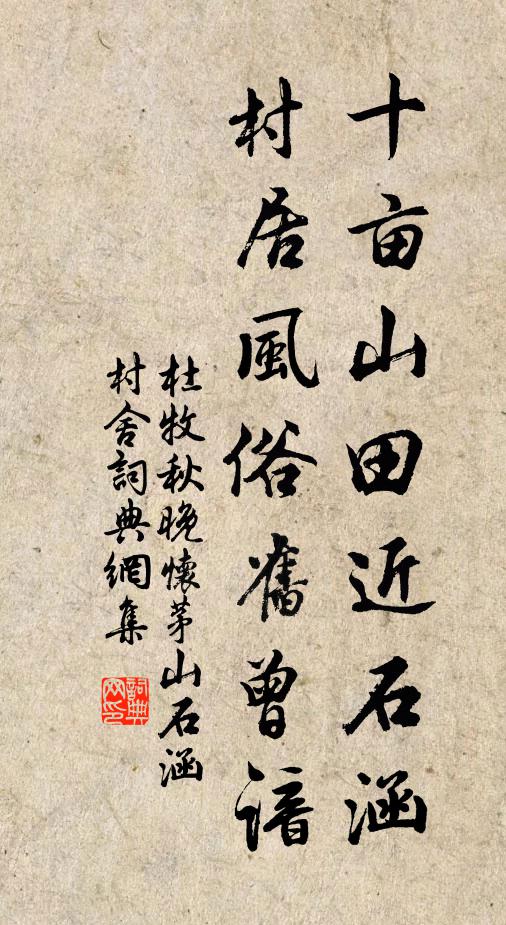 十亩山田近石涵
村居風俗舊曾諳
杜牧秋晚懷茅山石涵
村舍詞典網集
詞典网印